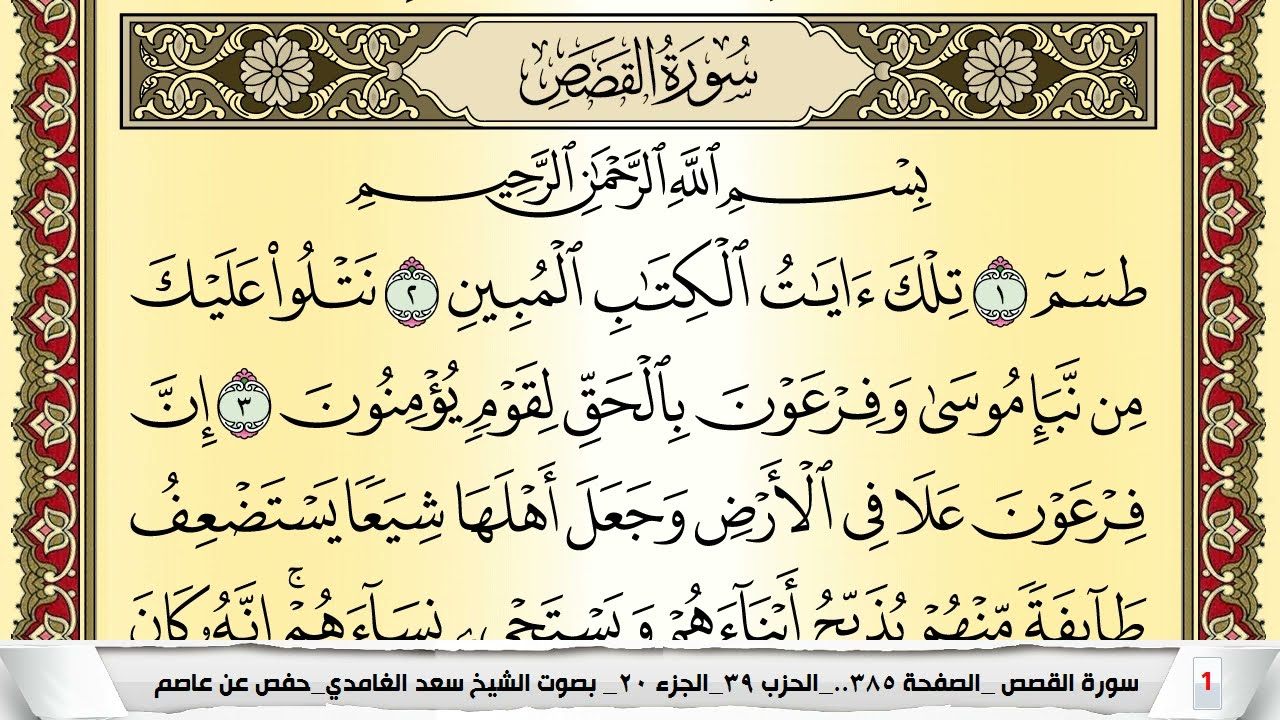 سُورَةُ القَصَصِ
بِسْمِ ٱللَّهِ ٱلرَّحْمَٰنِ ٱلرَّحِيمِ
طسٓمٓ ١ تِلْكَ ءَايَٰتُ ٱلْكِتَٰبِ ٱلْمُبِينِ ٢ نَتْلُوا۟ عَلَيْكَ
مِن نَّبَإِ مُوسَىٰ وَفِرْعَوْنَ بِٱلْحَقِّ لِقَوْمٍ يُؤْمِنُونَ ٣ إِنَّ
فِرْعَوْنَ عَلَا فِى ٱلْأَرْضِ وَجَعَلَ أَهْلَهَا شِيَعًا يَسْتَضْعِفُ
طَآئِفَةً مِّنْهُمْ يُذَبِّحُ أَبْنَآءَهُمْ وَيَسْتَحْىِۦ نِسَآءَهُمْ ۚ إِنَّهُۥ كَانَ
سورة القصص _الصفحة ٣٨٥.._الحزب ٣٩_الجزء ٢٠_ بصوت الشيخ سعد الغامدي_حفص عن عاصم
1